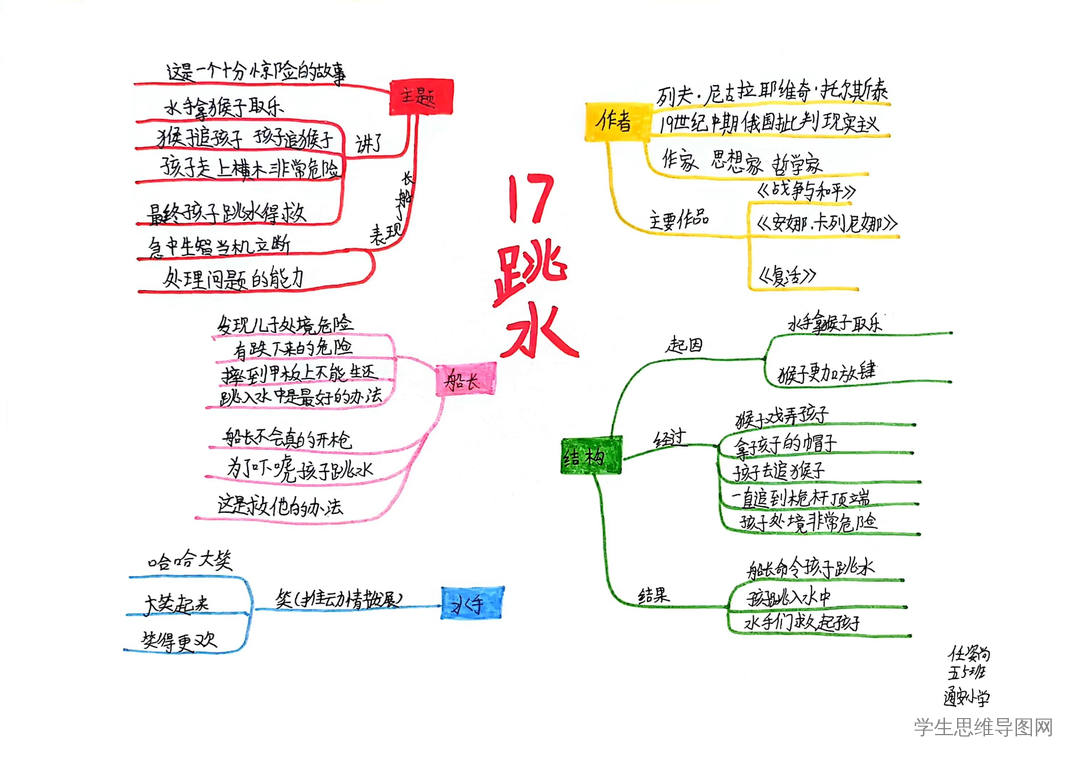 17
跳水
主题
这是一个十分惊险的故事
讲了
水手拿猴子取乐
猴子追孩子 孩子追猴子
孩子走上横木非常危险
最终孩子跳水得救
表现了船长
急中生智当机立断
处理问题的能力
作者
列夫·尼古拉耶维奇·托尔斯泰
19世纪中期俄国批判现实主义
作家 思想家 哲学家
主要作品
《战争与和平》
《安娜·卡列尼娜》
《复活》
船长
发现儿子处境危险
有跌下来的危险
摔到甲板上不能生还
跳入水中是最好的办法
船长不会真的开枪
为了吓唬孩子跳水
这是救他的办法
水手
笑(推动情节发展)
哈哈大笑
大笑起来
笑得更欢
结构
起因
水手拿猴子取乐
猴子更加放肆
经过
猴子戏弄孩子
拿孩子的帽子
孩子去追猴子
一直追到桅杆顶端
孩子处境非常危险
结果
船长命令孩子跳水
孩子跳入水中
水手们救起孩子
通安小学
学生思维导图网